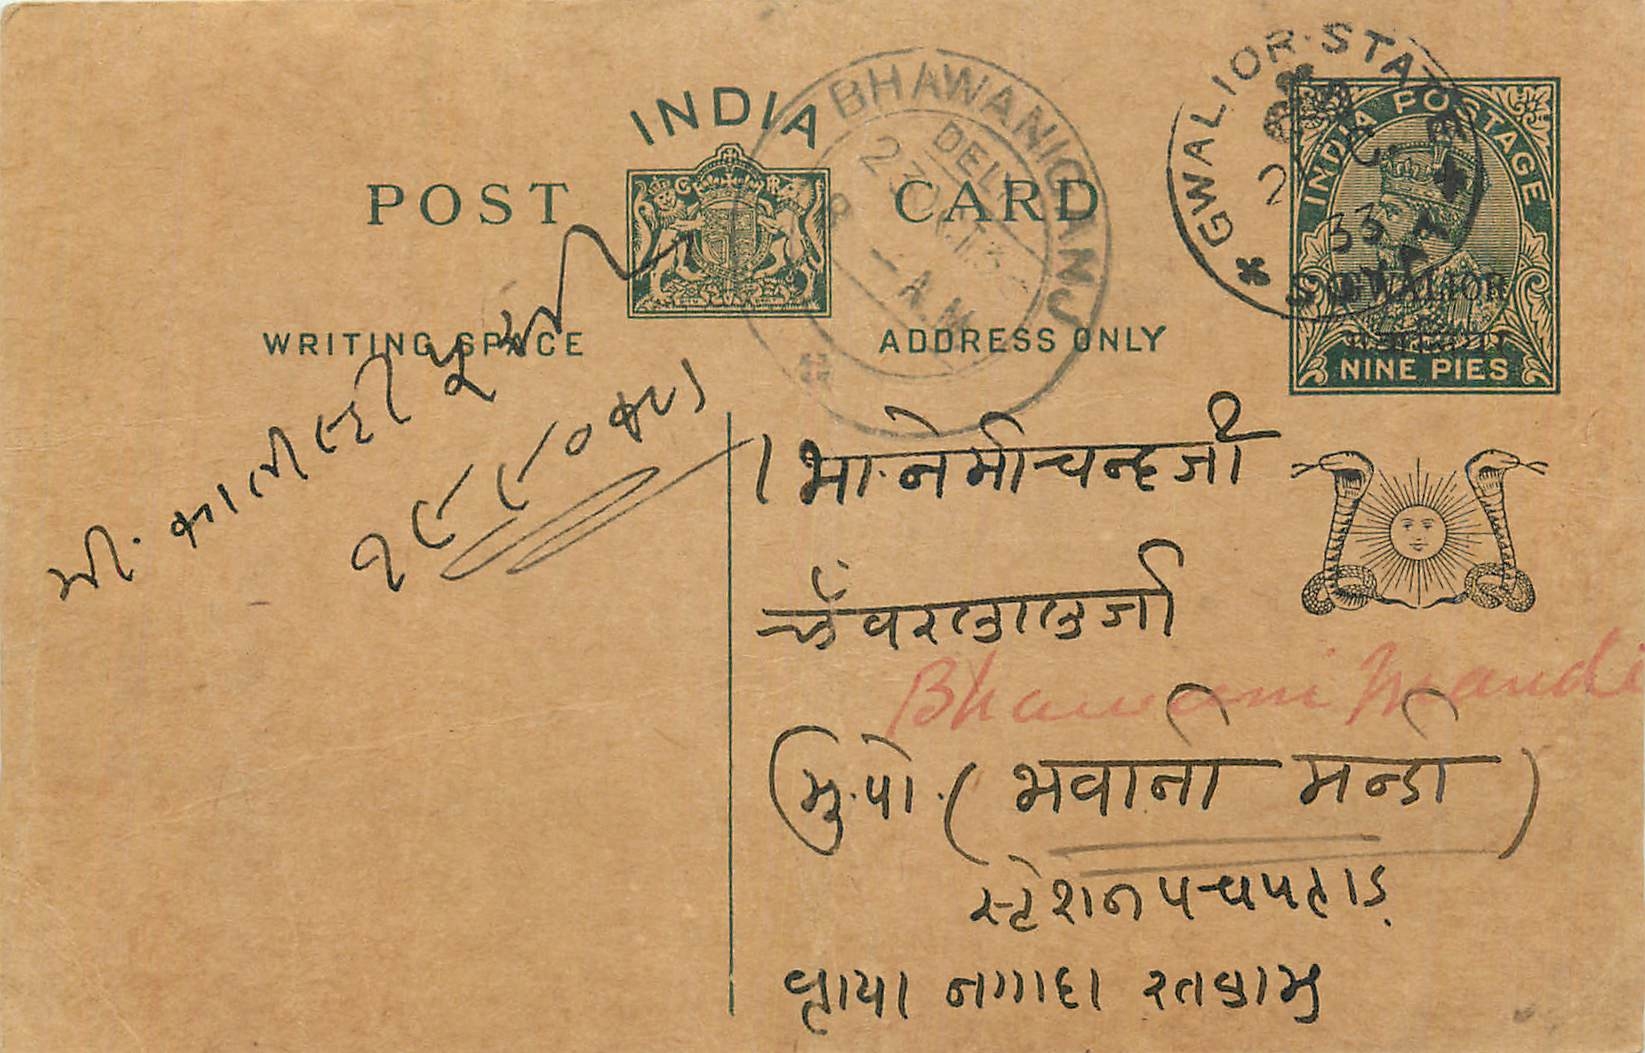 INDIA
POST CARD
WRITING SPACE
ADDRESS ONLY
BHAWANIGANJ
DELY
23 OCT 33
8 - A.M
GWALIOR · STATE
33
INDIA POSTAGE
GWALIOR
NINE PIES
मी. काती सुदी
१९९०
भा. नेमीचन्दजी
कँवरलालजी
Bhawani Mandi
मु. पो. ( भवानी मन्डी )
स्टेशन पचपहाड़
व्हाया नागदा रतलाम